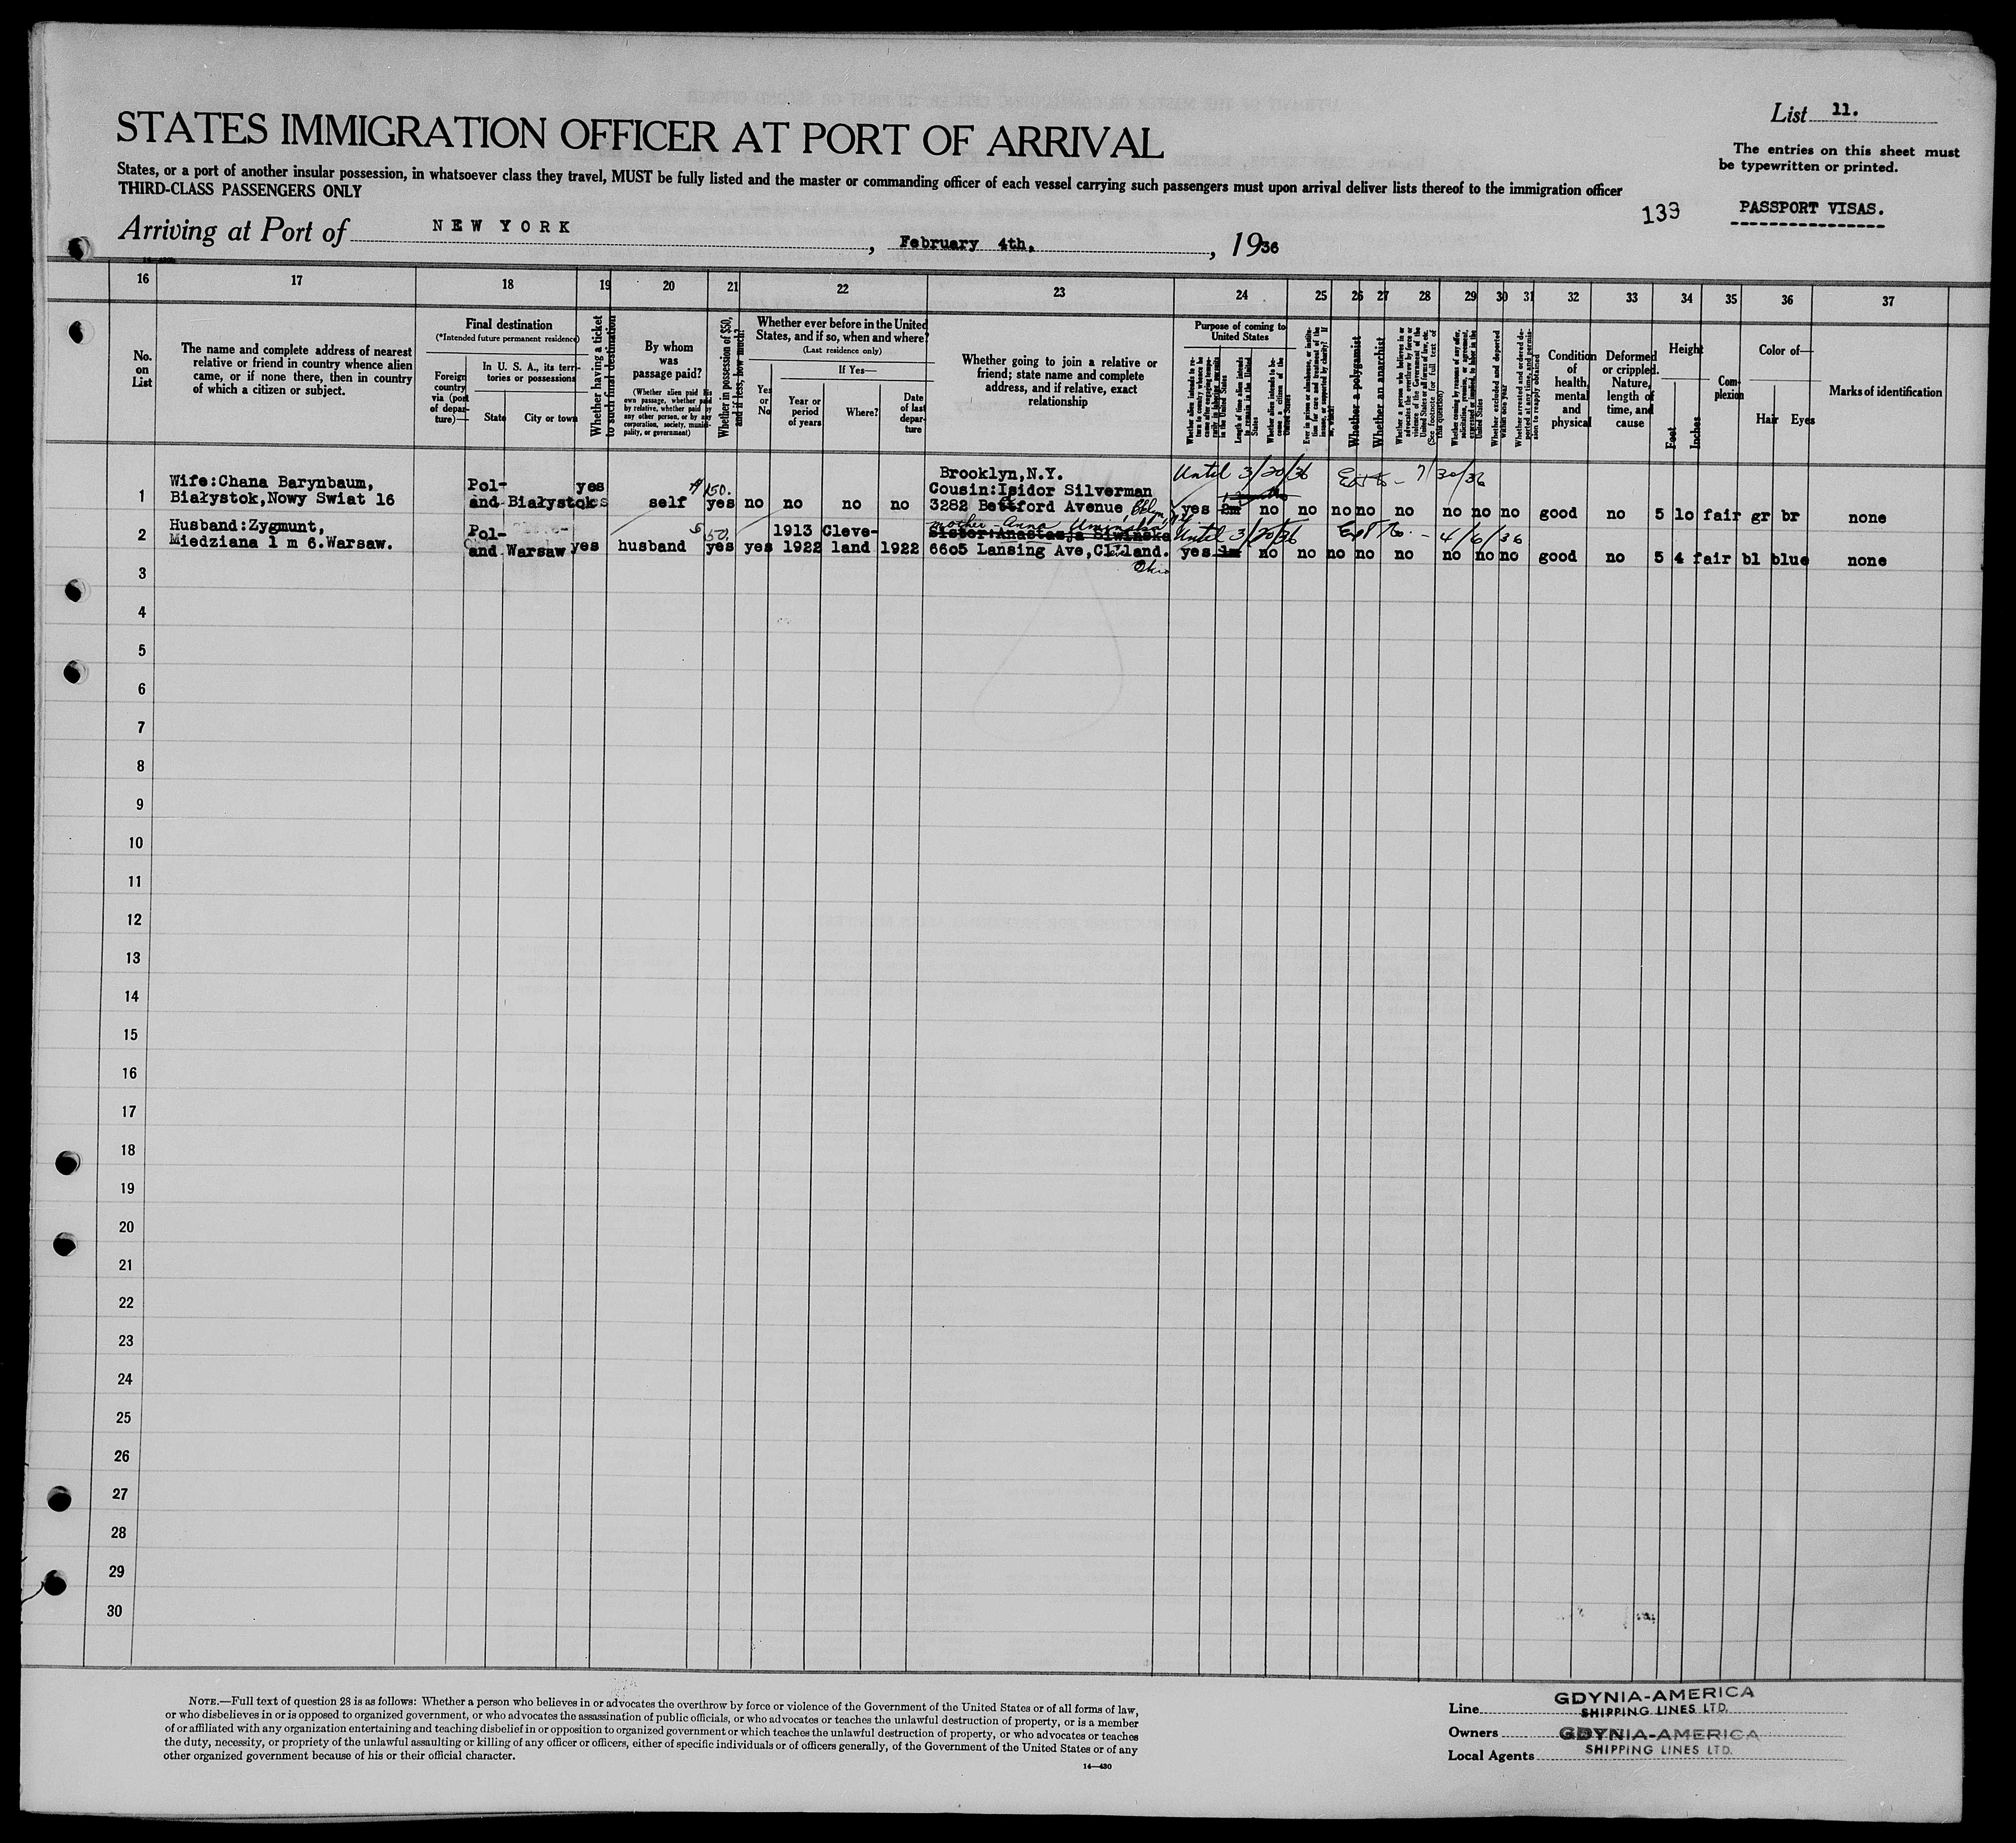 List 11.
STATES IMMIGRATION OFFICER AT PORT OF ARRIVAL
The entries on this sheet must
be typewritten or printed.
States, or a port of another insular possession, in whatsoever class they travel, MUST be fully listed and the master or commanding officer of each vessel carrying such passengers must upon arrival deliver lists thereof to the immigration officer
THIRD-CLASS PASSENGERS ONLY
133
PASSPORT VISAS.
Arriving at Port of NEW YORK, February 4th, 1936
16 17 18 19 20 21 22 23 24 25 26 27 28 29 30 31 32 33 34 35 36 37
No.
on
List
The name and complete address of nearest
relative or friend in country whence alien
came, or if none there, then in country
of which a citizen or subject.
Final destination
(*Intended future permanent residence)
Foreign
country
via (port
of depar-
ture)—
In U. S. A., its terri-
tories or possessions
State City or town
Whether having a ticket
to such final destination
By whom
was
passage paid?
(Whether alien paid his
own passage, whether paid
by relative, whether paid by
any other person, or by any
corporation, society, munic-
ipality, or government)
Whether in possession of $50,
and if less, how much?
Whether ever before in the United
States, and if so, when and where?
(Last residence only)
Yes
or
No
If Yes—
Year or
period
of years
Where?
Date
of last
depar-
ture
Whether going to join a relative or
friend; state name and complete
address, and if relative, exact
relationship
Purpose of coming to
United States
Whether alien intends to re-
turn to country whence he
came after engaging tempo-
rarily in laboring pursuits
in the United States
Length of time alien intends
to remain in the United
States
Whether alien intends to be-
come a citizen of the
United States
Ever in prison or almshouse, or institu-
tion for care and treatment of the
insane, or supported by charity? If
so, which?
Whether a polygamist
Whether an anarchist
Whether a person who believes in or
advocates the overthrow by force or
violence of the Government of the
United States or all forms of law, etc.
(See footnote for full text of
this question)
Whether coming by reason of any offer,
solicitation, promise, or agreement,
expressed or implied, to labor in the
United States
Whether excluded and deported
within one year
Whether arrested and ordered de-
ported at any time, and permis-
sion to reapply obtained
Condition
of
health,
mental
and
physical
Deformed
or crippled.
Nature,
length of
time, and
cause
Height
Feet Inches
Com-
plexion
Color of—
Hair Eyes
Marks of identification
Brooklyn,N.Y. Until 3/20/36 7/30/36
Wife:Chana Barynbaum, Pol- yes Cousin:Isidor Silverman
1 Białystok,Nowy Swiat 16 and Białystok self 150. yes no no no no 3282 Bedford Avenue yes 2m no no no no no no no no good no 5 10 fair gr br none
Husband:Zygmunt, Pol- 50. 1913 Cleve- mother Anna Uminska Until 3/20/36 4/6/36
Sister:Anastasja Siwinska
2 Miedziana 1 m 6.Warsaw. and Warsaw yes husband yes yes 1922 land 1922 6605 Lansing Ave,Cleveland. yes no no no no no no no no good no 5 4 fair bl blue none
Ohio
3
4
5
6
7
8
9
10
11
12
13
14
15
16
17
18
19
20
21
22
23
24
25
26
27
28
29
30
NOTE.—Full text of question 28 is as follows: Whether a person who believes in or advocates the overthrow by force or violence of the Government of the United States or of all forms of law,
or who disbelieves in or is opposed to organized government, or who advocates the assassination of public officials, or who advocates or teaches the unlawful destruction of property, or is a member
of or affiliated with any organization entertaining and teaching disbelief in or opposition to organized government or which teaches the unlawful destruction of property, or who advocates or teaches
the duty, necessity, or propriety of the unlawful assaulting or killing of any officer or officers, either of specific individuals or of officers generally, of the Government of the United States or of any
other organized government because of his or their official character.
14—430
Line GDYNIA-AMERICA
SHIPPING LINES LTD.
Owners GDYNIA-AMERICA
Local Agents SHIPPING LINES LTD.